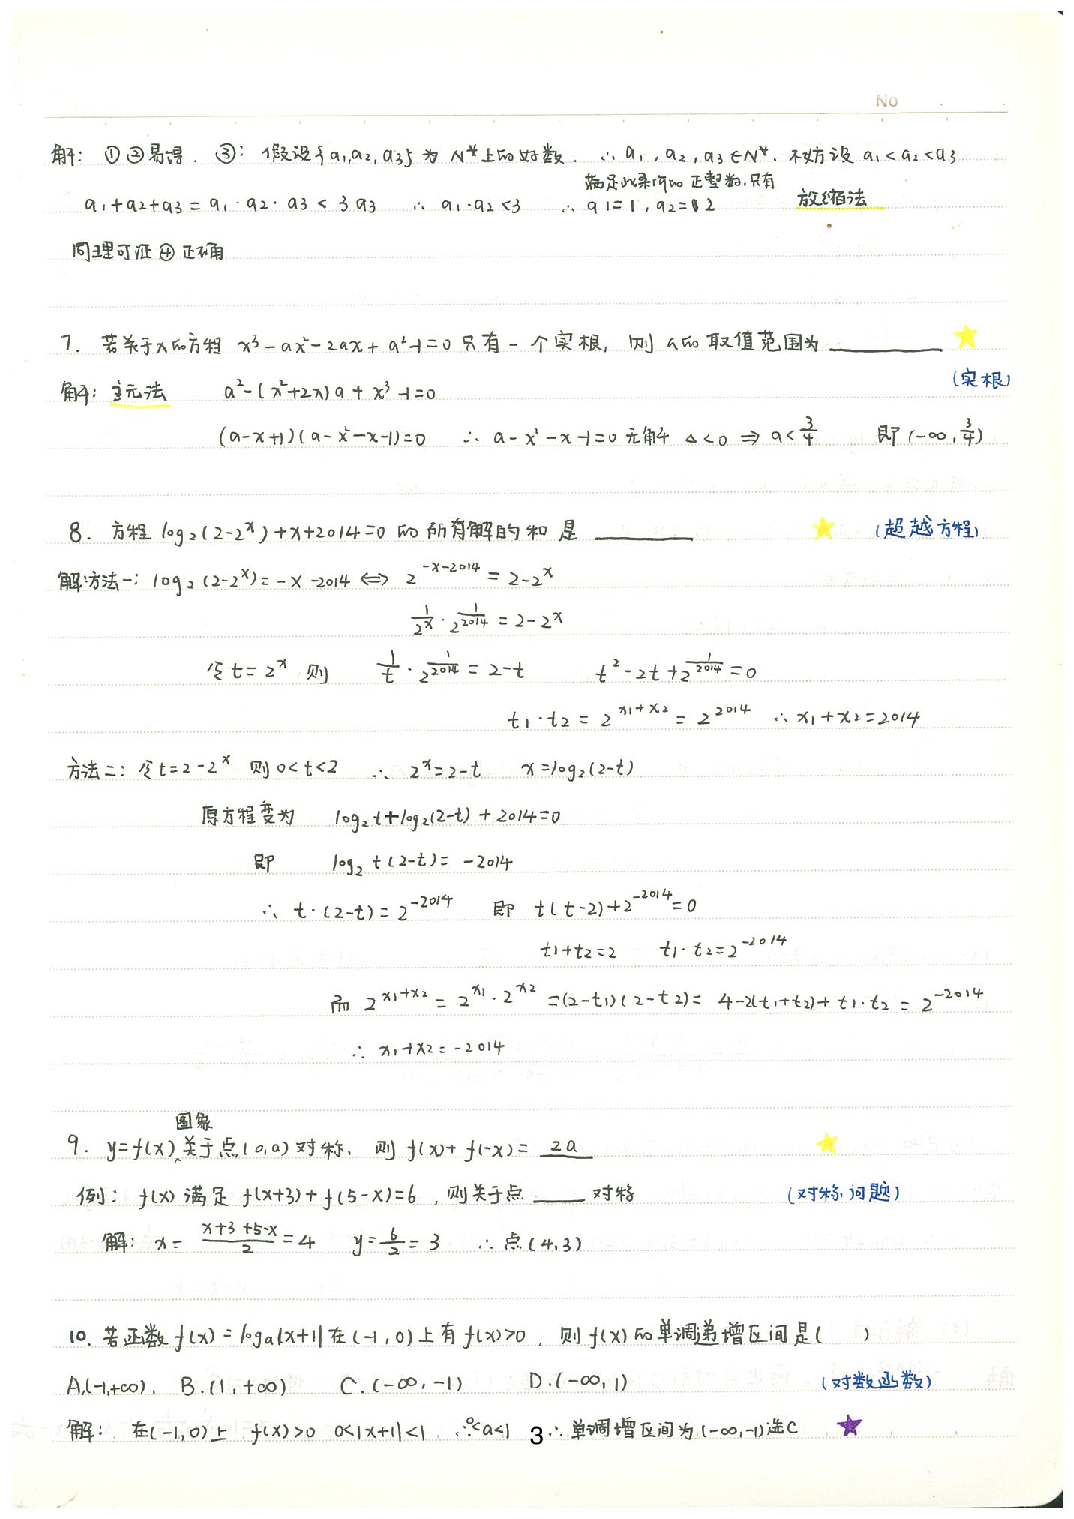 No
解: ①②易得. ③: 假设{a₁,a₂,a₃}为N*上的好数. ∴a₁,a₂,a₃∈N*. 不妨设 a₁<a₂<a₃
满足此条件的正整数.只有
a₁+a₂+a₃=a₁·a₂·a₃<3a₃ ∴ a₁·a₂<3 ∴ a₁=1, a₂=2 放缩法
同理可证④正确
7. 若关于x的方程 x³-ax²-2ax+a²-1=0 只有一个实根, 则a的取值范围为 ______ ★
(实根)
解: 主元法 a²-(x²+2x)a+x³-1=0
(a-x+1)(a-x²-x-1)=0 ∴ a-x²-x-1=0 无解 △<0 ⇒ a<3/4 即(-∞,3/4)
8. 方程 log₂(2-2^x)+x+2014=0 的所有解的和是 ______ ★ (超越方程)
解:方法一: log₂(2-2^x)=-x-2014 ⇔ 2^(-x-2014)=2-2^x
1/2^x · 2^(1/2014) = 2-2^x
令t=2^x 则 1/t · 2^(1/2014) = 2-t t²-2t+2^(1/2014)=0
t₁·t₂=2^(x₁+x₂)=2^2014 ∴ x₁+x₂=2014
方法二: 令t=2-2^x 则 0<t<2 ∴ 2^x=2-t x=log₂(2-t)
原方程变为 log₂t+log₂(2-t)+2014=0
即 log₂ t(2-t)=-2014
∴ t·(2-t)=2^(-2014) 即 t(t-2)+2^(-2014)=0
t₁+t₂=2 t₁·t₂=2^(-2014)
而 2^(x₁+x₂)=2^x₁·2^x₂=(2-t₁)(2-t₂)=4-2(t₁+t₂)+t₁·t₂=2^(-2014)
∴ x₁+x₂=-2014
图象
9. y=f(x)关于点(0,a)对称, 则 f(x)+f(-x)= 2a ★
例: f(x)满足 f(x+3)+f(5-x)=6, 则关于点 ____ 对称 (对称问题)
解: x=(x+3+5-x)/2=4 y=6/2=3 ∴点(4,3)
10. 若函数 f(x)=logₐ|x+1| 在(-1,0)上有 f(x)>0, 则f(x)的单调递增区间是( )
A.(-1,+∞). B.(1,+∞) C.(-∞,-1) D.(-∞,1) (对数函数)
解: 在(-1,0)上 f(x)>0 0<|x+1|<1 ∴0<a<1 ∴单调增区间为(-∞,-1)选C ★
3